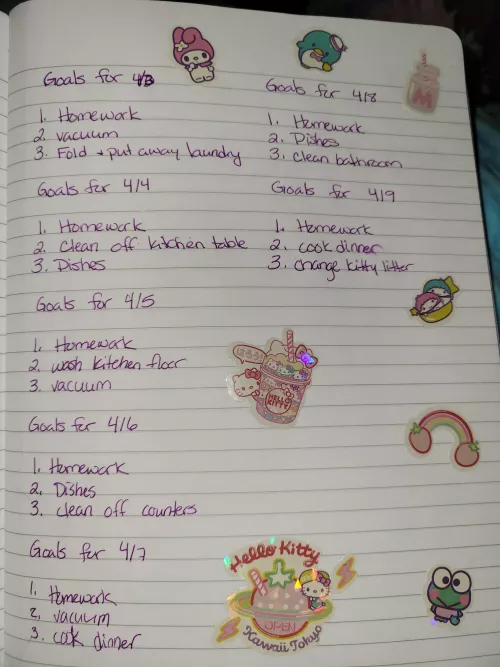 Goals for 4/3
1. Homework
2. vacuum
3. Fold + put away laundry
Goals for 4/4
1. Homework
2. Clean off kitchen table
3. Dishes
Goals for 4/5
1. Homework
2. wash kitchen floor
3. vacuum
Goals for 4/6
1. Homework
2. Dishes
3. clean off counters
Goals for 4/7
1. Homework
2. vacuum
3. cook dinner
Goals for 4/8
1. Homework
2. Dishes
3. clean bathroom
Goals for 4/9
1. Homework
2. cook dinner
3. change kitty litter
M
Hello Kitty
Hello Kitty
OPEN
Kawaii Tokyo